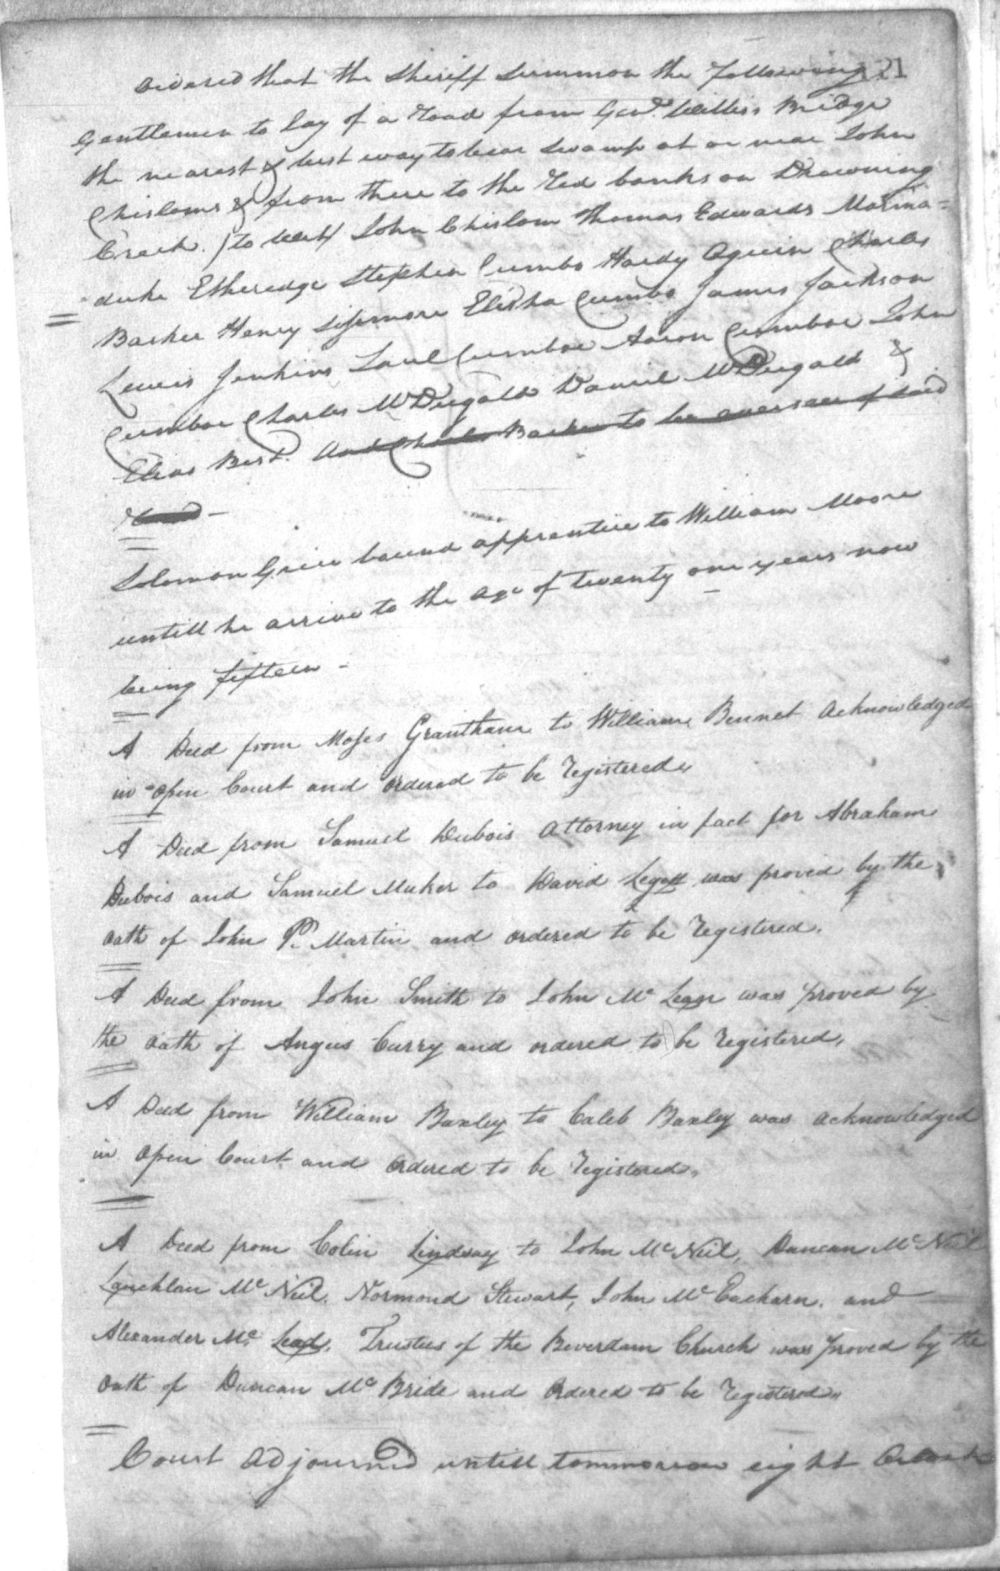 121
Ordered that the Sheriff Summon the following
Gentlemen to lay of a road from Genl. Willis's Bridge
the nearest & best way to bear Swamp at or near John
Chisloms & from there to the Red banks on Drowning
Creek. (to Wit) John Chislom Thomas Edwards Marma=
duke Etheredge Stephen Cumbo Hardy Aguin Charles
Barker Henry Sissemore Elisha Cumbo James Jackson
Lewis Jenkins Saul Cumboe Aaron Cumboe John
Cumboe Charles McDugald Daniel McDugald &
Elias Best. And Charles Barker to be overseer of said
Road -
Solomon Grice bound apprentice to William Moore
untill he arrive to the age of twenty one years now
being fifteen -
A Deed from Moses Grantham to William Bennet Acknowledged
in Open Court and Ordered to be registered
A Deed from Samuel Dubois Attorney in fact for Abraham
Dubois and Samuel Meeker to David Legett was proved by the
oath of John P. Martin and ordered to be Registered.
A Deed from John Smith to John Mc Lean was proved by
the oath of Angus Curry and ordered to be registered.
A Deed from William Baxley to Caleb Baxley was acknowledged
in Open Court and Ordered to be Registered.
A Deed from Colin Lindsay to John McNeil, Duncan McNeil
Lauchlan McNeil, Normond Stewart, John McEacharn. and
Alexander Mc Leod. Trustees of the Beverdam Church was proved by the
oath of Duncan McBride and Ordered to be registered
Court adjourned untill tommorrow eight Oclock